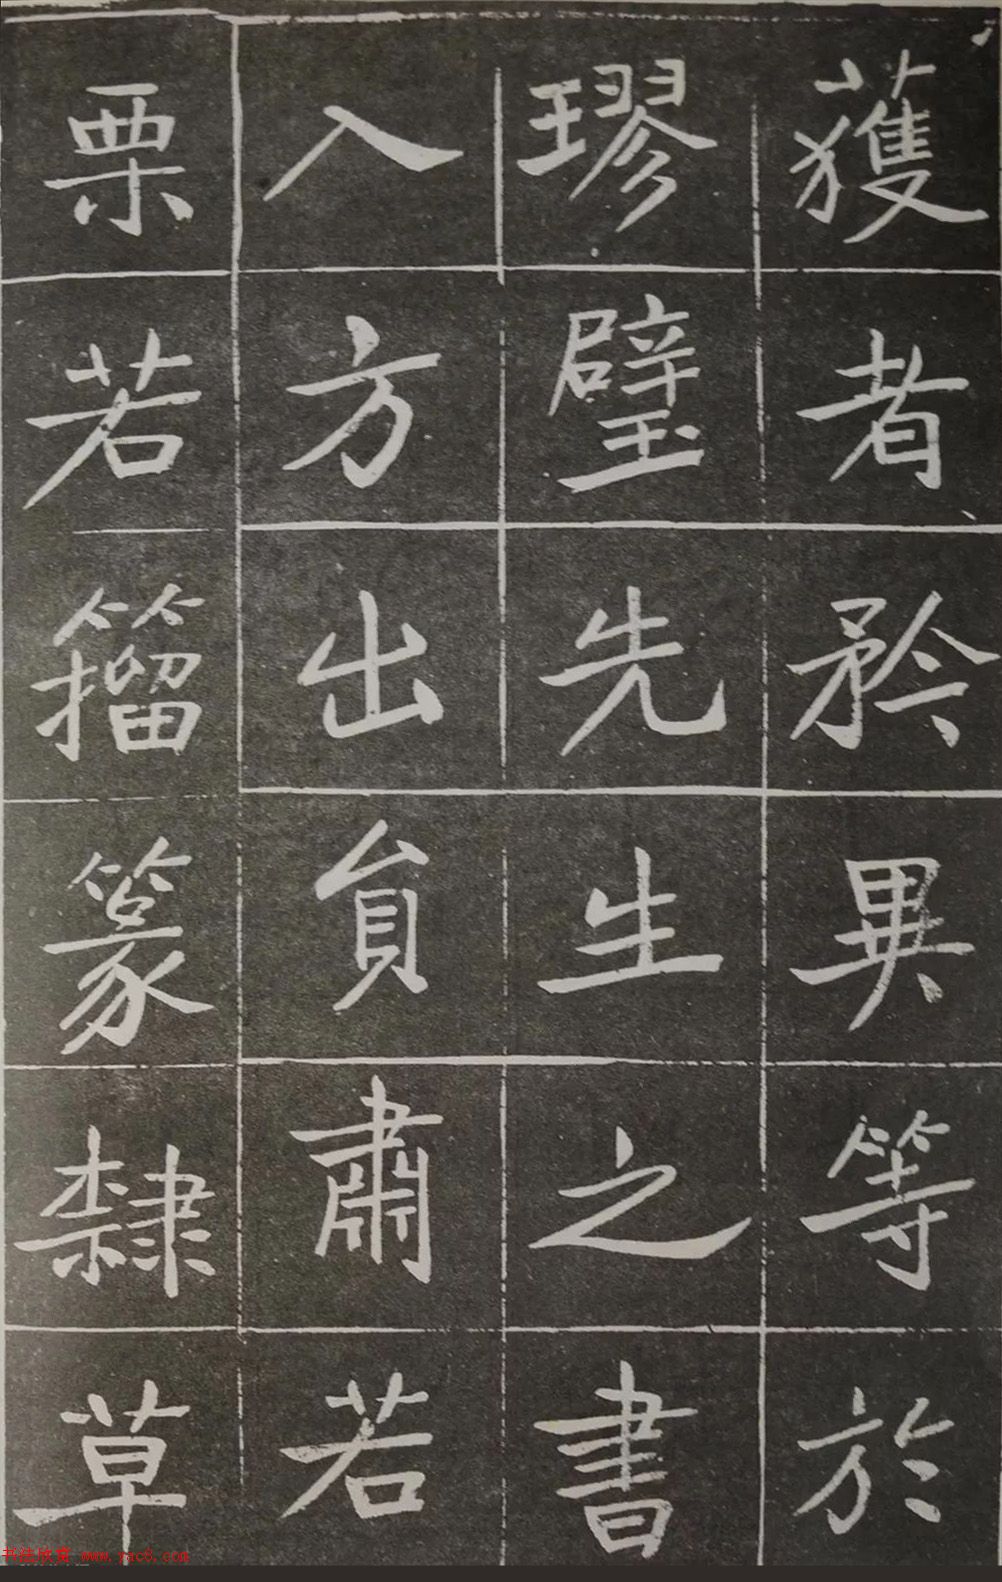 獲者矜異等於
璆璧先生之書
入方出員肅若
栗若籀篆隸草
书法欣赏 www.yac8.com